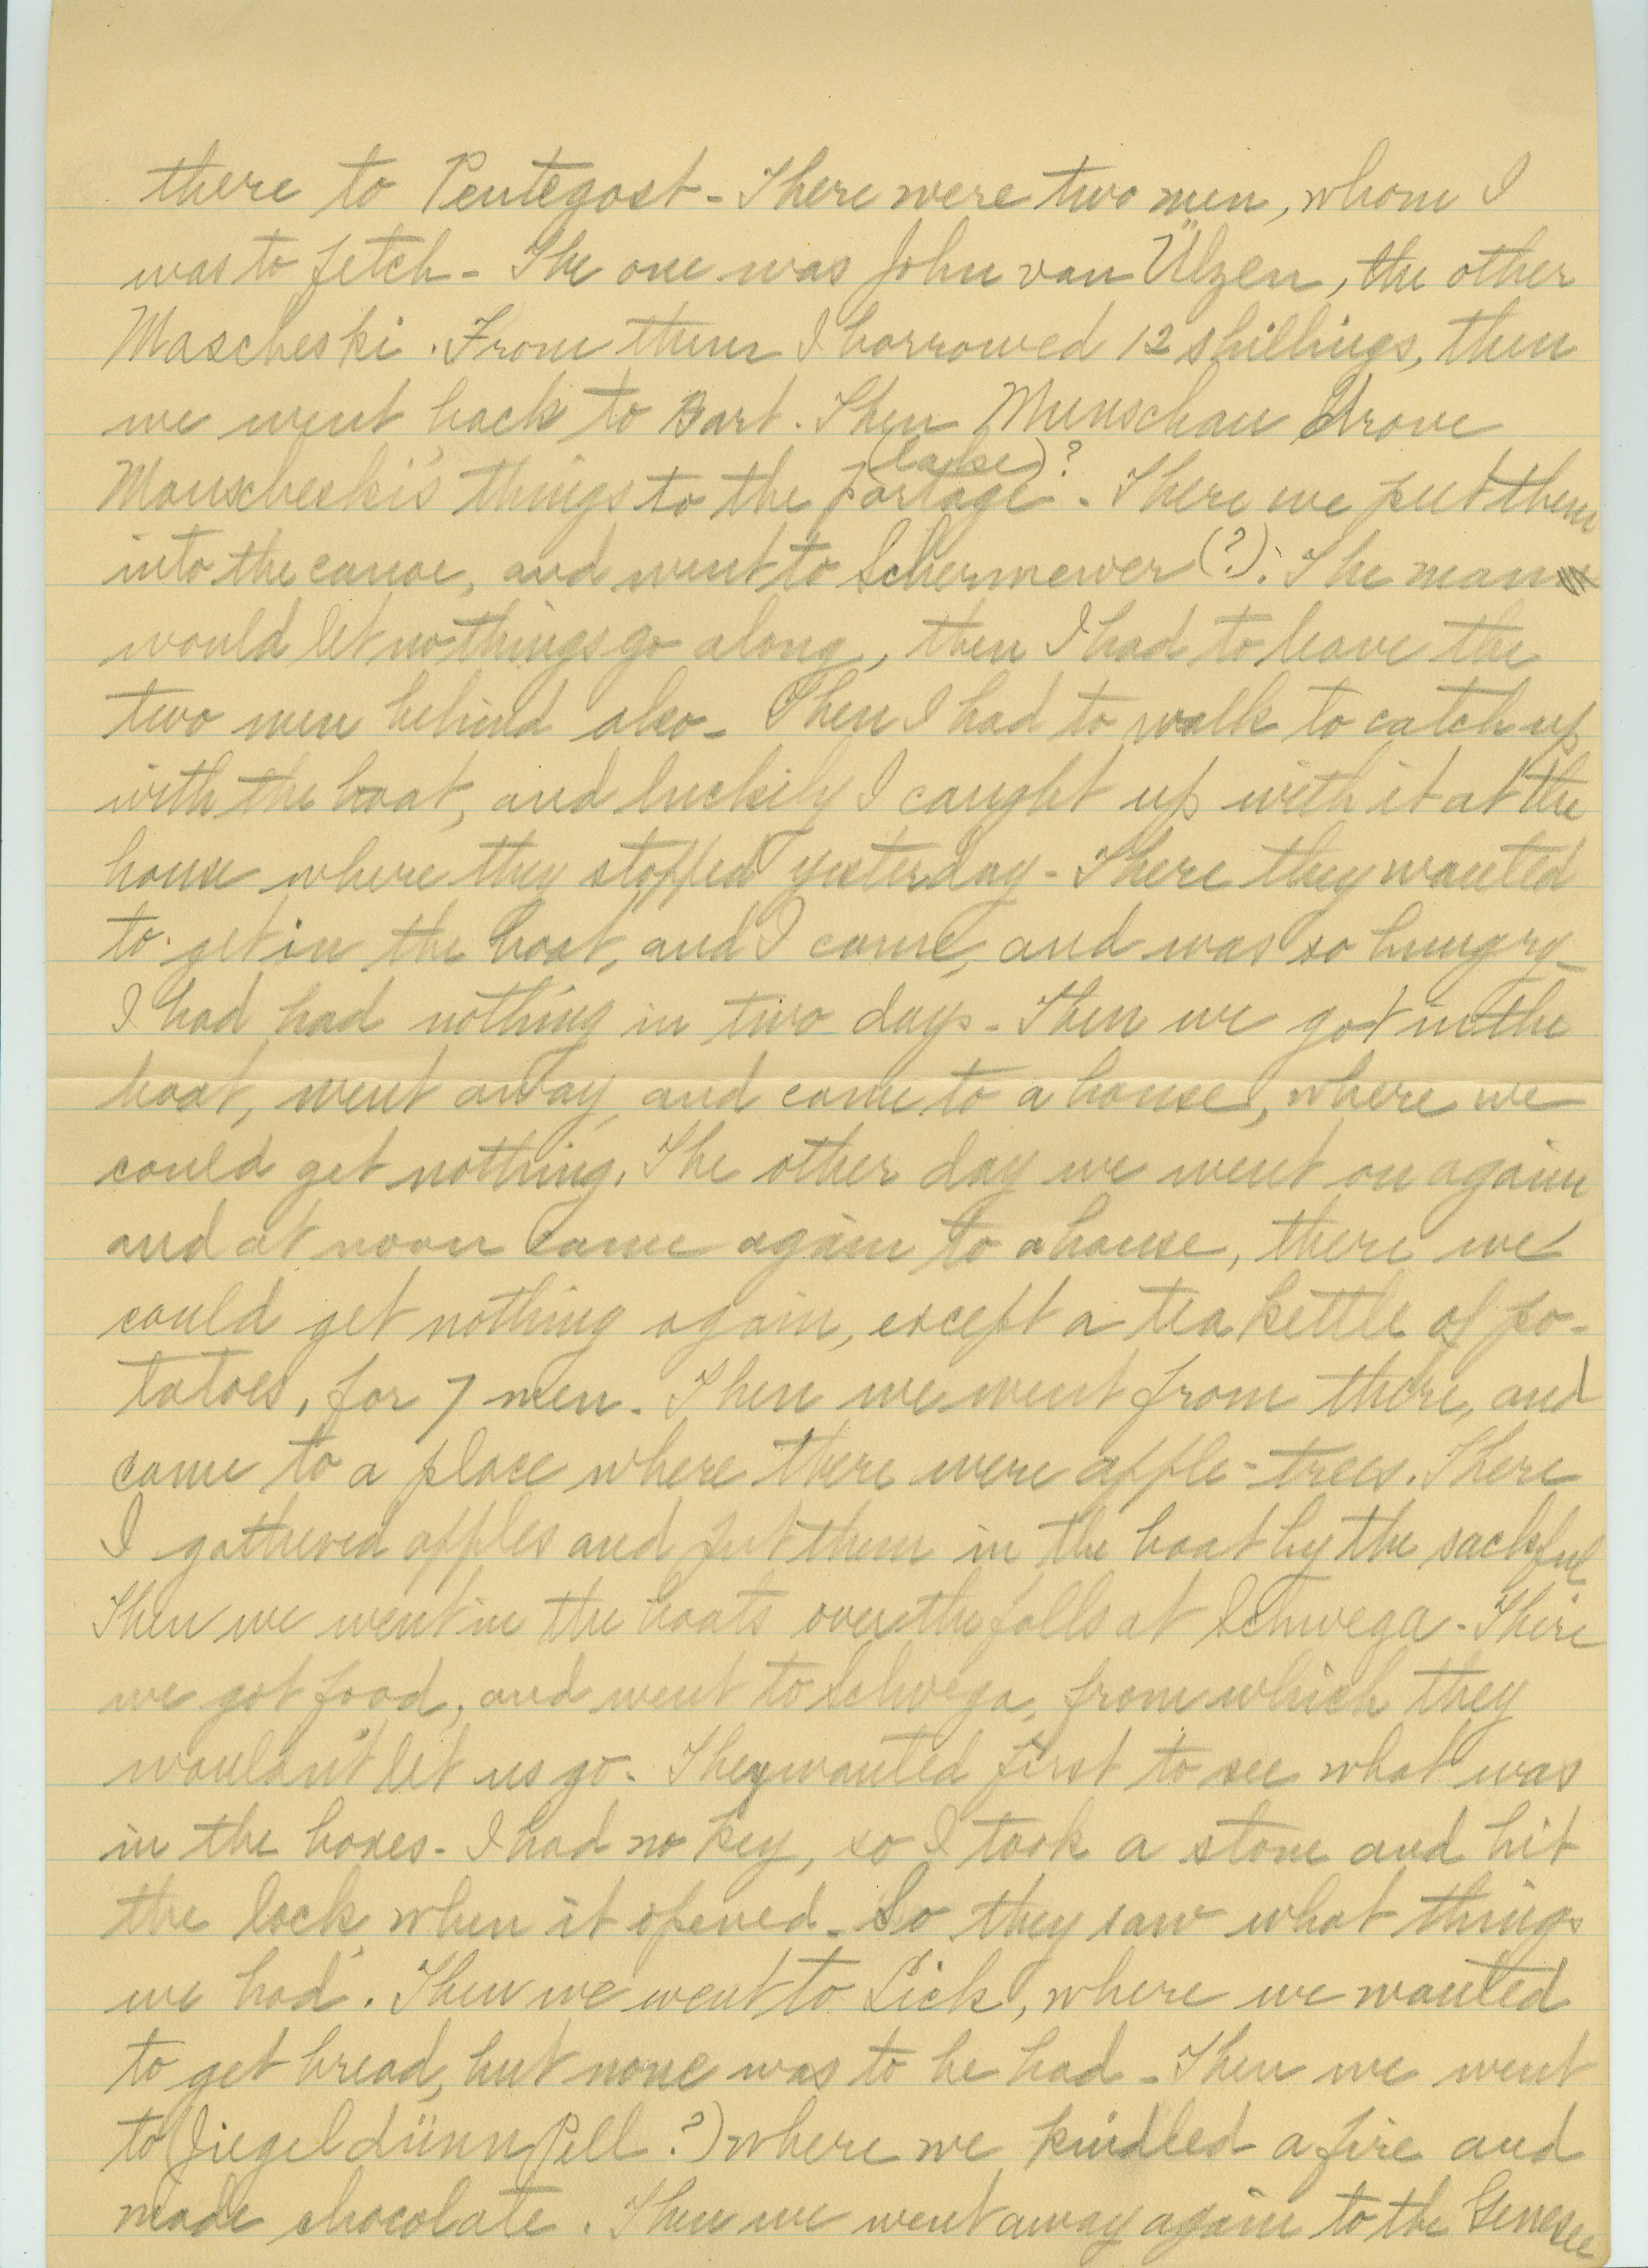 there to Pentegost - There were two men, whom I
was to fetch - The one was John van Ülzen, the other
Mascheski. From them I borrowed 12 shillings, then
we went back to Bart. Then Munschau drove
(lake)?
Mouscheski's things to the portage - There we put them
into the canoe, and went to Schermewer (?). The man
would let no things go along, then I had to leave the
two men behind also - Then I had to walk to catch up
with the boat, and luckily I caught up with it at the
house where they stopped yesterday - There they wanted
to get in the boat, and I came, and was so hungry -
I had had nothing in two days - Then we got in the
boat, went away, and came to a house, where we
could get nothing. The other day we went on again
and at noon came again to a house, there we
could get nothing again, except a tea kettle of po-
tatoes, for 7 men. Then we went from there, and
came to a place where there were apple-trees. There
I gathered apples and put them in the boat by the sackful
Then we went in the boats over the falls at Schwega - There
we got food, and went to Schwega, from which they
wouldn't let us go. They wanted first to see what was
in the boxes - I had no key, so I took a stone and hit
the lock when it opened - So they saw what things
we had. Then we went to Lick, where we wanted
to get bread, but none was to be had - Then we went
to (Ziegeldünn Pell ?) where we kindled a fire and
made chocolate. Then we went away again to the Genesee